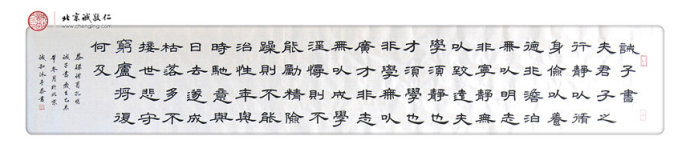 北京誠敬仁
www.chengjing.com
誡子書
夫君子之
行靜以脩
身儉以養
德非澹泊
無以明志
非寧靜無
以致遠夫
學須靜也
才須學也
非學無以
廣才非志
無以成學
淫慢則不
能勵精險
躁則不能
治性年與
時馳意與
日去遂成
枯落多不
接世悲守
窮廬將復
何及
恭録諸葛孔明
誡子書歲在乙未